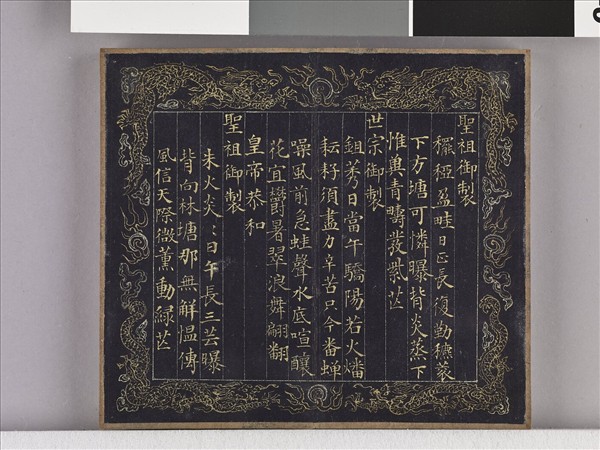 聖祖御製
穲稏盈畦日正長復勤穮蓘
下方塘可憐曝背炎蒸下
惟冀青疇發紫芒
世宗御製
鉏莠日當午驕陽若火燔
耘耔須盡力辛苦只今番蟬
噪風前急蛙聲水底喧釀
花宜鬱暑翠浪舞翩翻
皇帝恭和
聖祖御製
朱火炎〻日午長三芸曝
背向林塘那無解慍傳
風信天際微薰動綠芒